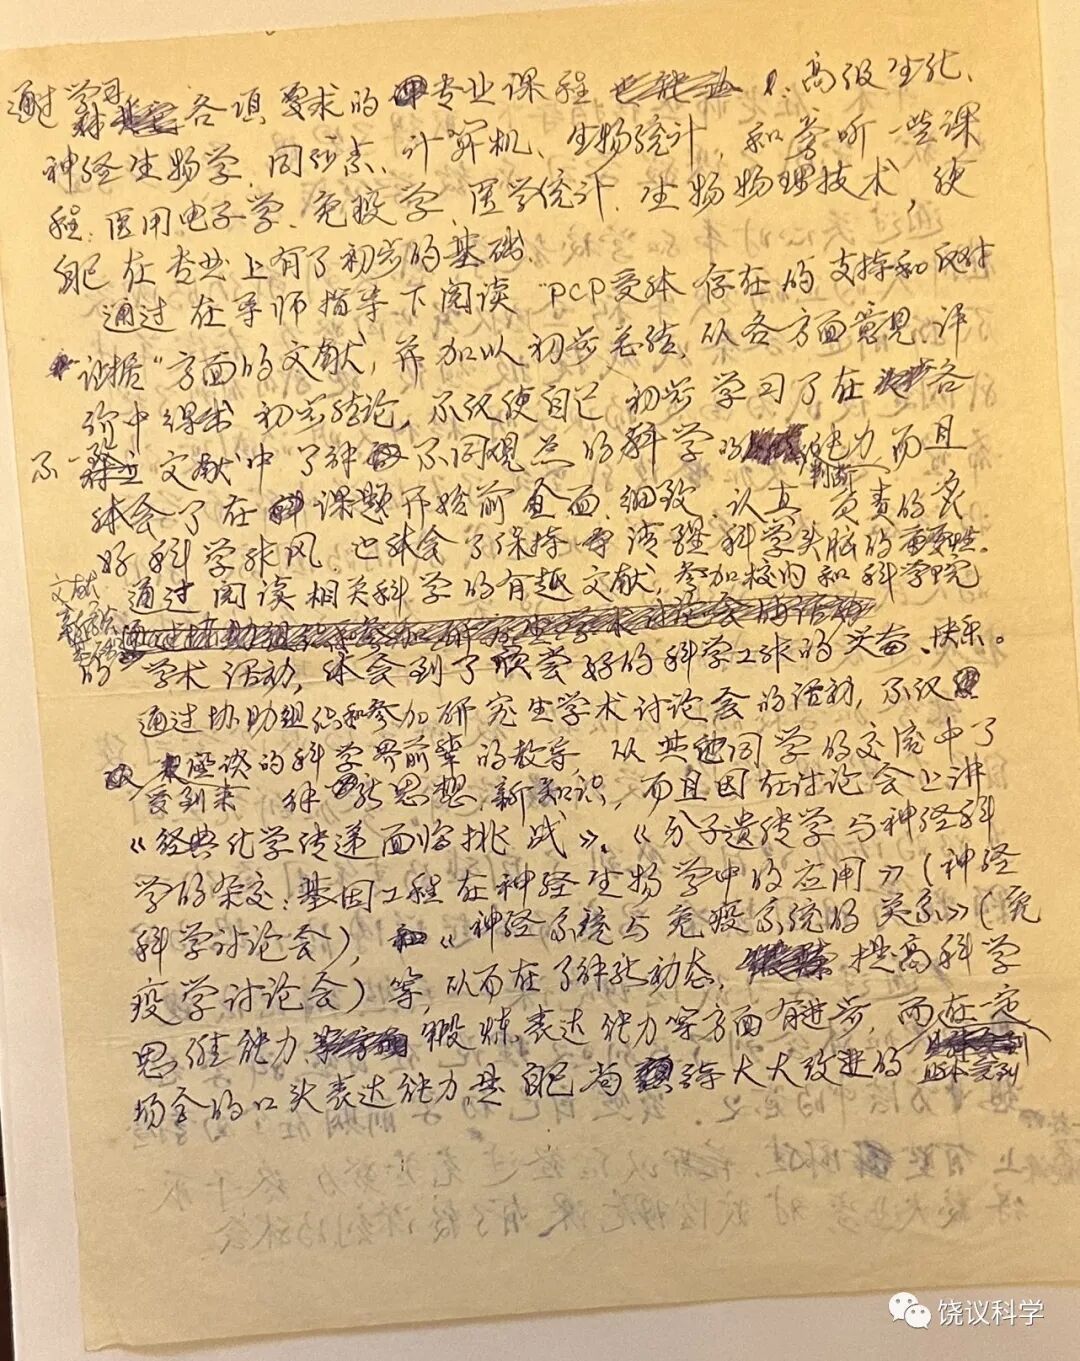 通过学习各项要求的专业课程：高级生化、
神经生物学、同位素、计算机、生物统计，和旁听一些课
程：医用电子学、免疫学、医学统计、生物物理技术，使
自己在专业上有了初步的基础。
通过在导师指导下阅读“PCP受体存在的支持和反对
证据”方面的文献，并加以初步总结，从各方面意见、评
价中得出初步结论，不仅使自己初步学习了在各
不文献中了解不同观点的科学的判断能力，而且
体会了在课题开始前全面、细致、认真、负责的良
好科学作风，也体会了保持清醒科学头脑的重要性。
通过阅读相关科学的有趣文献，参加校内和科学院
的
学术活动，体会到了欣赏好的科学工作的兴奋、快乐。
通过协助组织和参加研究生学术讨论会的活动，不仅
受到来座谈的科学界前辈的教导，从其他同学的交流中了
解新思想、新知识，而且因在讨论会上讲
《经典化学传递面临挑战》、《分子遗传学与神经科
学的杂交：基因工程在神经生物学中的应用》（神经
科学讨论会），和《神经系统与免疫系统的关系》（免
疫学讨论会）等，从而在了解新动态，提高科学
思维能力，锻炼表达能力等方面有进步，而在一定
场合的口头表达能力是自己尚待大大改进的
饶议科学